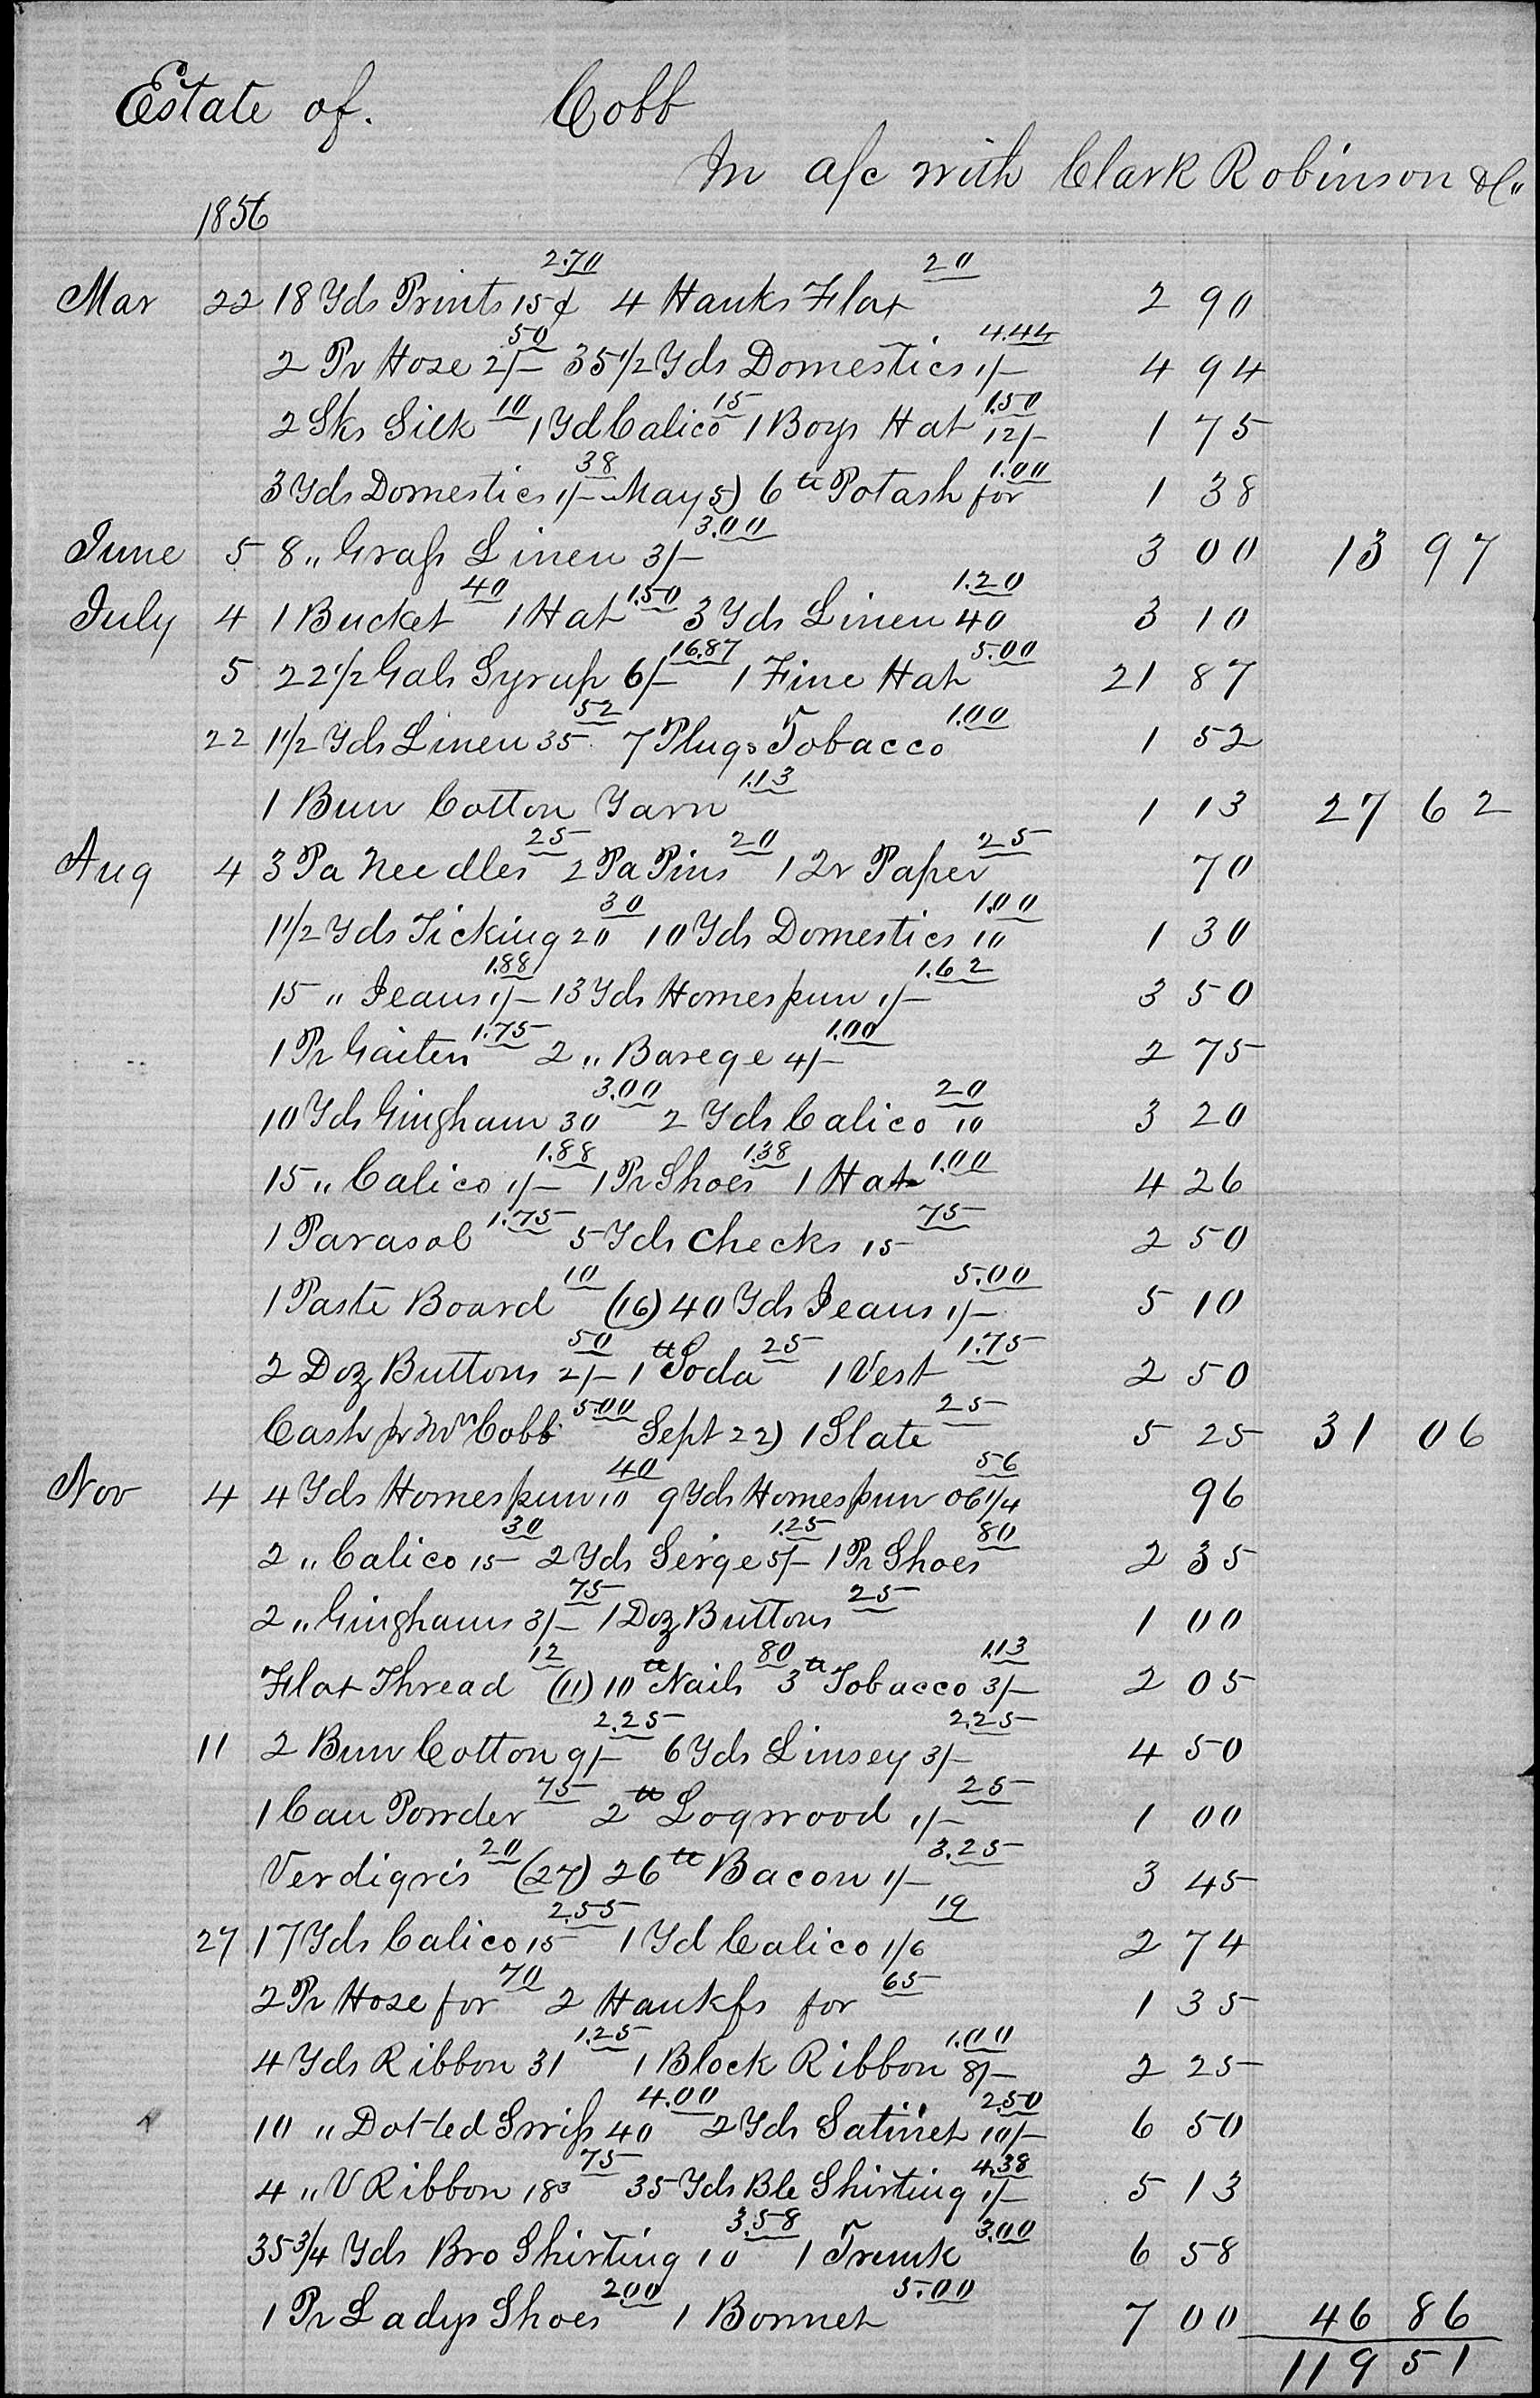 Estate of. Cobb
In a/c with Clark Robinson & Co
1856
Mar 22 18 Yds Prints 15¢ 2.70 4 Hanks Flax 20 2 90
2 Pr Hose 2/- 50 35 1/2 Yds Domestics 1/- 4.44 4 94
2 Sks Silk 10 1 Yd Calico 15 1 Boys Hat 12/- 1.50 1 75
3 Yds Domestics 1/- 38 May 5) 6 ℔ Potash for 1.00 1 38
June 5 8 " Grass Linen 3/- 3.00 3 00 13 97
July 4 1 Bucket 40 1 Hat 1.50 3 Yds Linen 40 1.20 3 10
5 22 1/2 Gals Syrup 6/- 16.87 1 Fine Hat 5.00 21 87
22 1 1/2 Yds Linen 35 52 7 Plugs Tobacco 1.00 1 52
1 Bun Cotton Yarn 1.13 1 13 27 62
Aug 4 3 Pa Needles 25 2 Pa Pins 20 1 Qr Paper 25 70
1 1/2 Yds Ticking 20 30 10 Yds Domestics 10 1.00 1 30
15 " Jeans 1/- 1.88 13 Yds Homespun 1/- 1.62 3 50
1 Pr Gaiters 1.75 2 " Barege 4/- 1.00 2 75
10 Yds Gingham 30 3.00 2 Yds Calico 10 20 3 20
15 " Calico 1/- 1.88 1 Pr Shoes 1.38 1 Hat 1.00 4 26
1 Parasol 1.75 5 Yds Checks 15 75 2 50
1 Paste Board 10 (16) 40 Yds Jeans 1/- 5.00 5 10
2 Doz Buttons 2/- 50 1 ℔ Soda 25 1 Vest 1.75 2 50
Cash pr Cobb 5.00 Sept 22) 1 Slate 25 5 25 31 06
Nov 4 4 Yds Homespun 10 40 9 Yds Homespun 06 1/4 56 96
2 " Calico 15 30 2 Yds Serge 5/- 1.25 1 Pr Shoes 80 2 35
2 " Ginghams 3/- 75 1 Doz Buttons 25 1 00
Flax Thread 12 (11) 10 ℔ Nails 80 3 ℔ Tobacco 3/- 1.13 2 05
11 2 Bun Cotton 9/- 2.25 6 Yds Linsey 3/- 2.25 4 50
1 Can Powder 75 2 ℔ Logwood 1/- 25 1 00
Verdigris 20 (27) 26 ℔ Bacon 1/- 3.25 3 45
27 17 Yds Calico 15 2.55 1 Yd Calico 1/6 19 2 74
2 Pr Hose for 70 2 Hankfs for 65 1 35
4 Yds Ribbon 31 1.25 1 Block Ribbon 8/- 1.00 2 25
10 " Dotted Swiss 40 4.00 2 Yds Satinet 10/- 2.50 6 50
4 " V Ribbon 18 3 75 35 Yds Ble Shirting 1/- 4.38 5 13
35 3/4 Yds Bro Shirting 10 3.58 1 Trunk 3.00 6 58
1 Pr Ladys Shoes 2.00 1 Bonnet 5.00 7 00 46 86
119 51